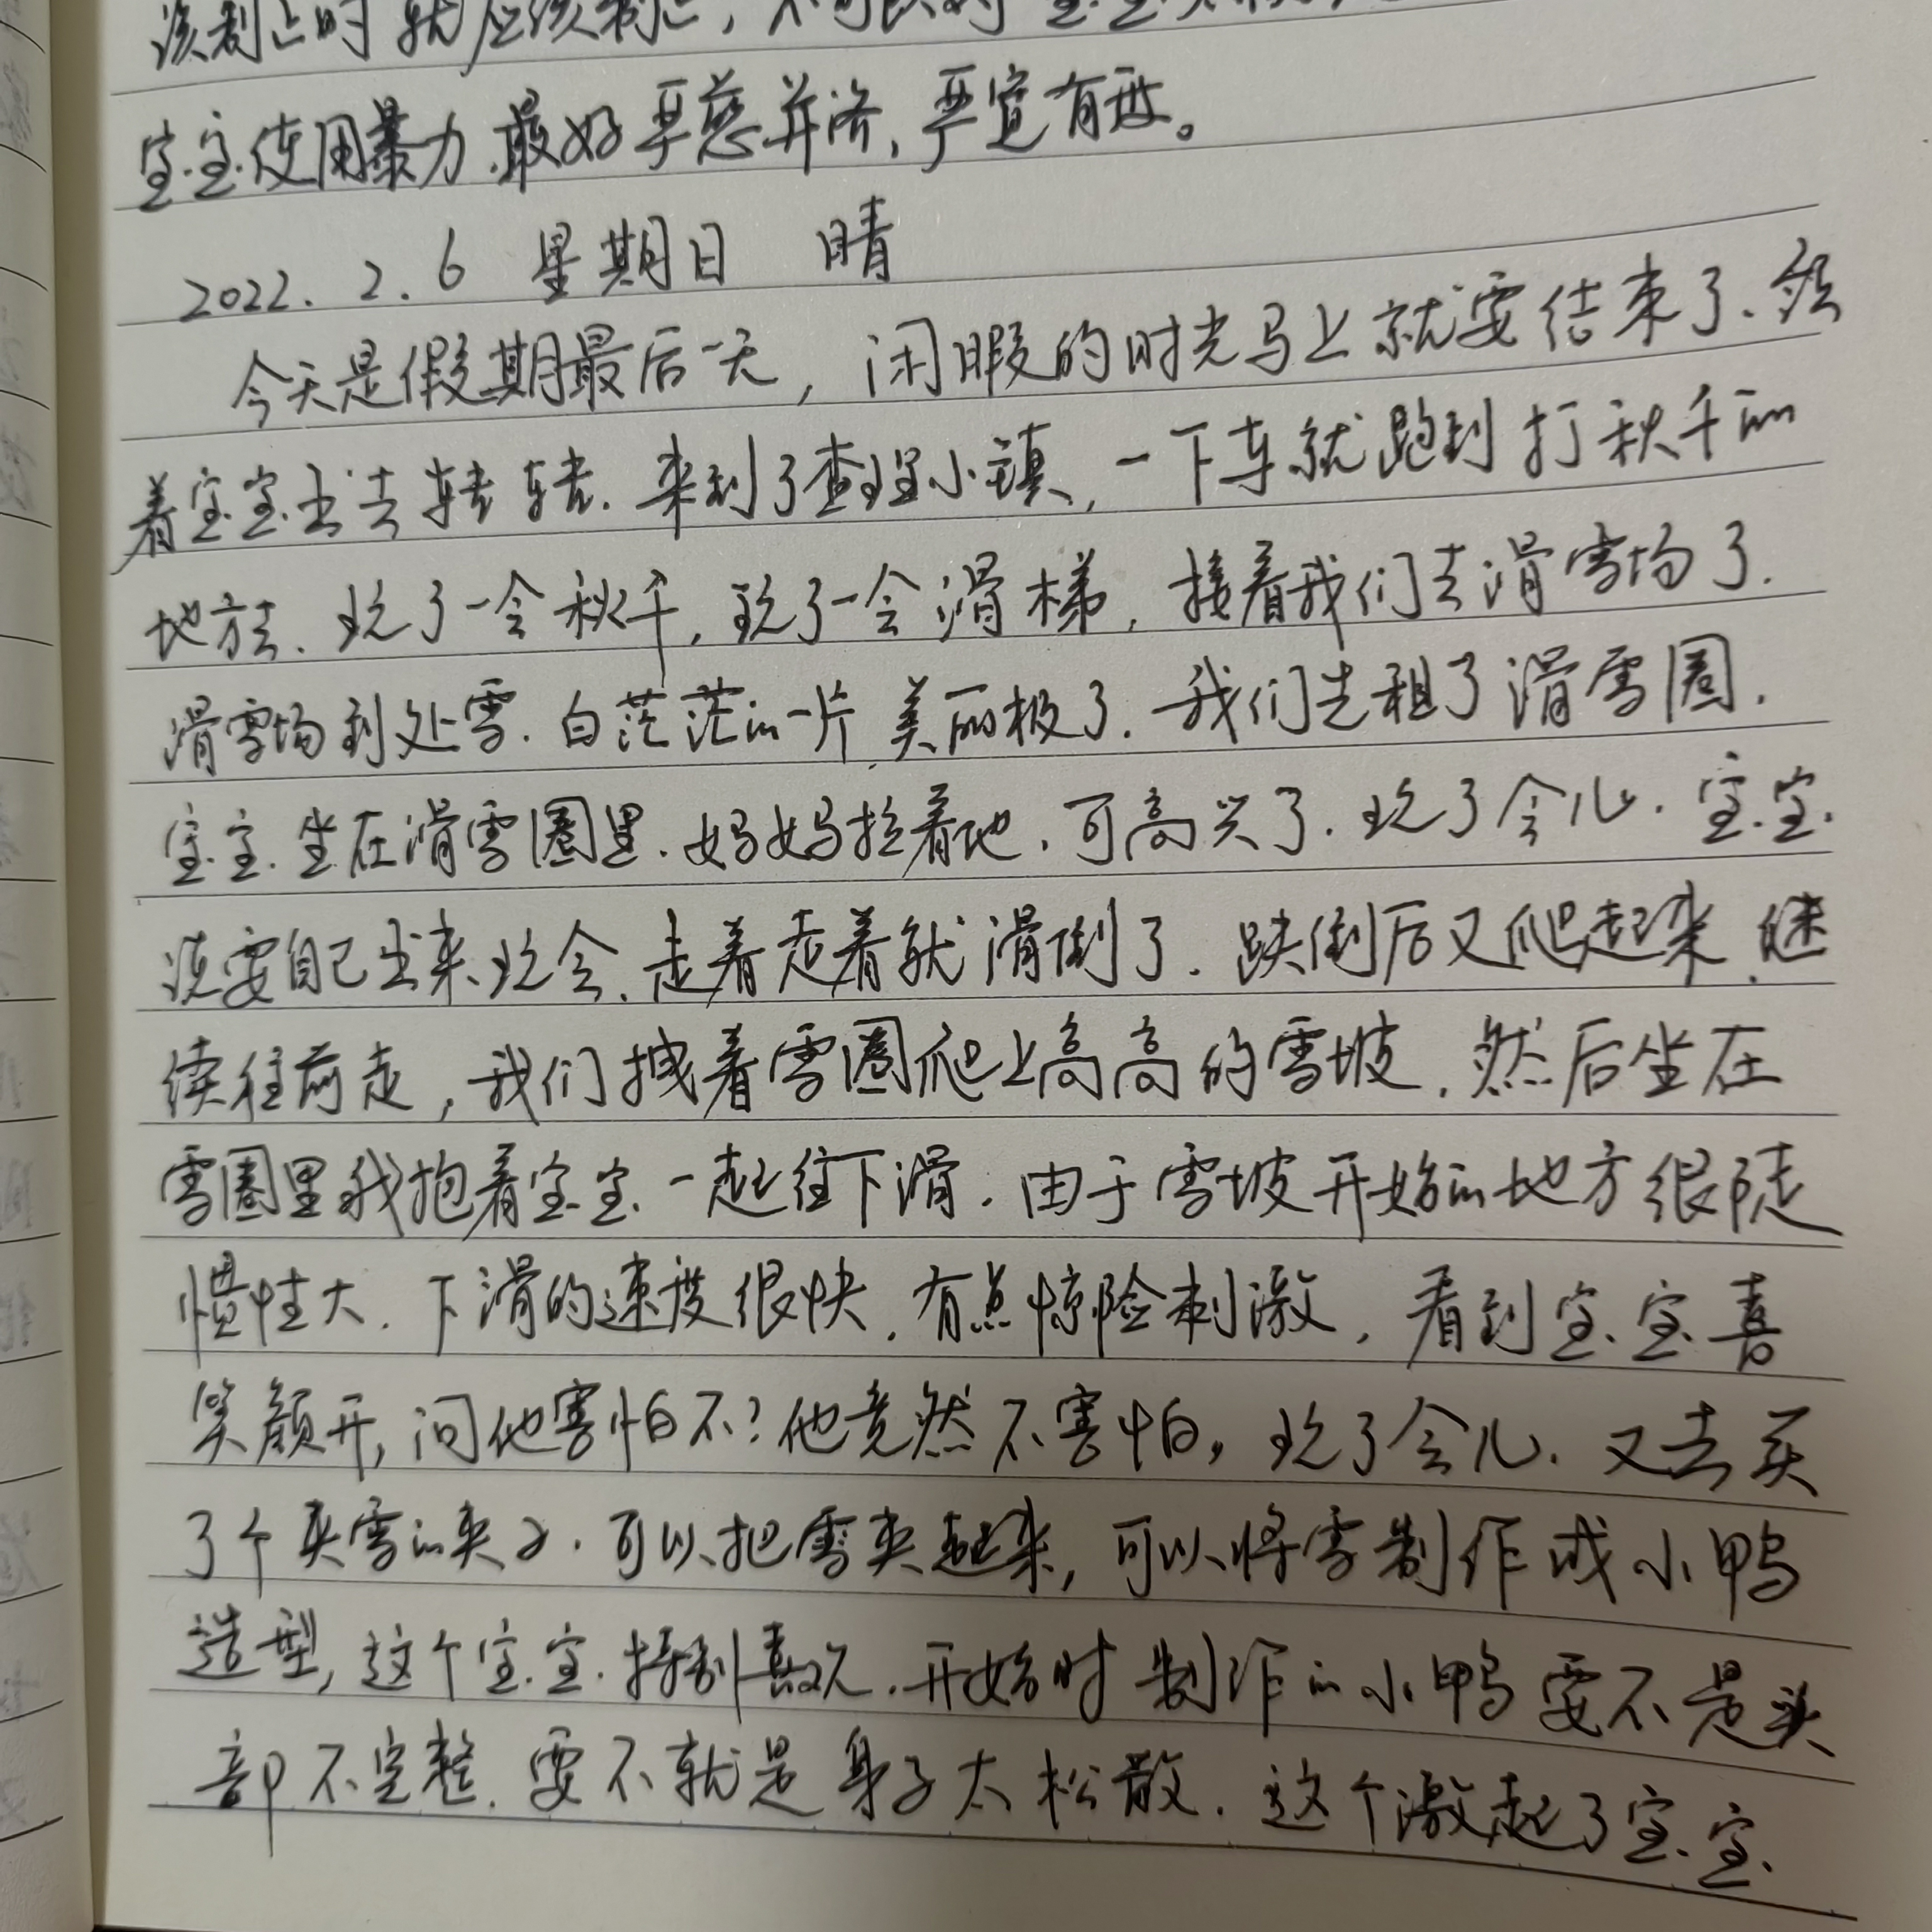 该制止时就应该制止，不可以对宝宝
宝宝使用暴力，最好严慈并济，严宽有度。
2022.2.6 星期日 晴
今天是假期最后一天，闲暇的时光马上就要结束了，领
着宝宝出去转转，来到了查理小镇，一下车就跑到打秋千的
地方去，玩了一会秋千，玩了一会滑梯，接着我们去滑雪场了.
滑雪场到处雪，白茫茫的一片，美丽极了，我们先租了滑雪圈，
宝宝坐在滑雪圈里，妈妈拉着他，可高兴了，玩了会儿，宝宝
说要自己出来玩会，走着走着就滑倒了，跌倒后又爬起来，继
续往前走，我们拽着雪圈爬上高高的雪坡，然后坐在
雪圈里我抱着宝宝一起往下滑，由于雪坡开始的地方很陡
惯性大，下滑的速度很快，有点惊险刺激，看到宝宝喜
笑颜开，问他害怕不？他竟然不害怕，玩了会儿，又去买
了个夹雪的夹子，可以把雪夹起来，可以将雪制作成小鸭
造型，这个宝宝特别喜欢，开始时制作的小鸭要不是头
部不完整，要不就是身子太松散，这个激起了宝宝